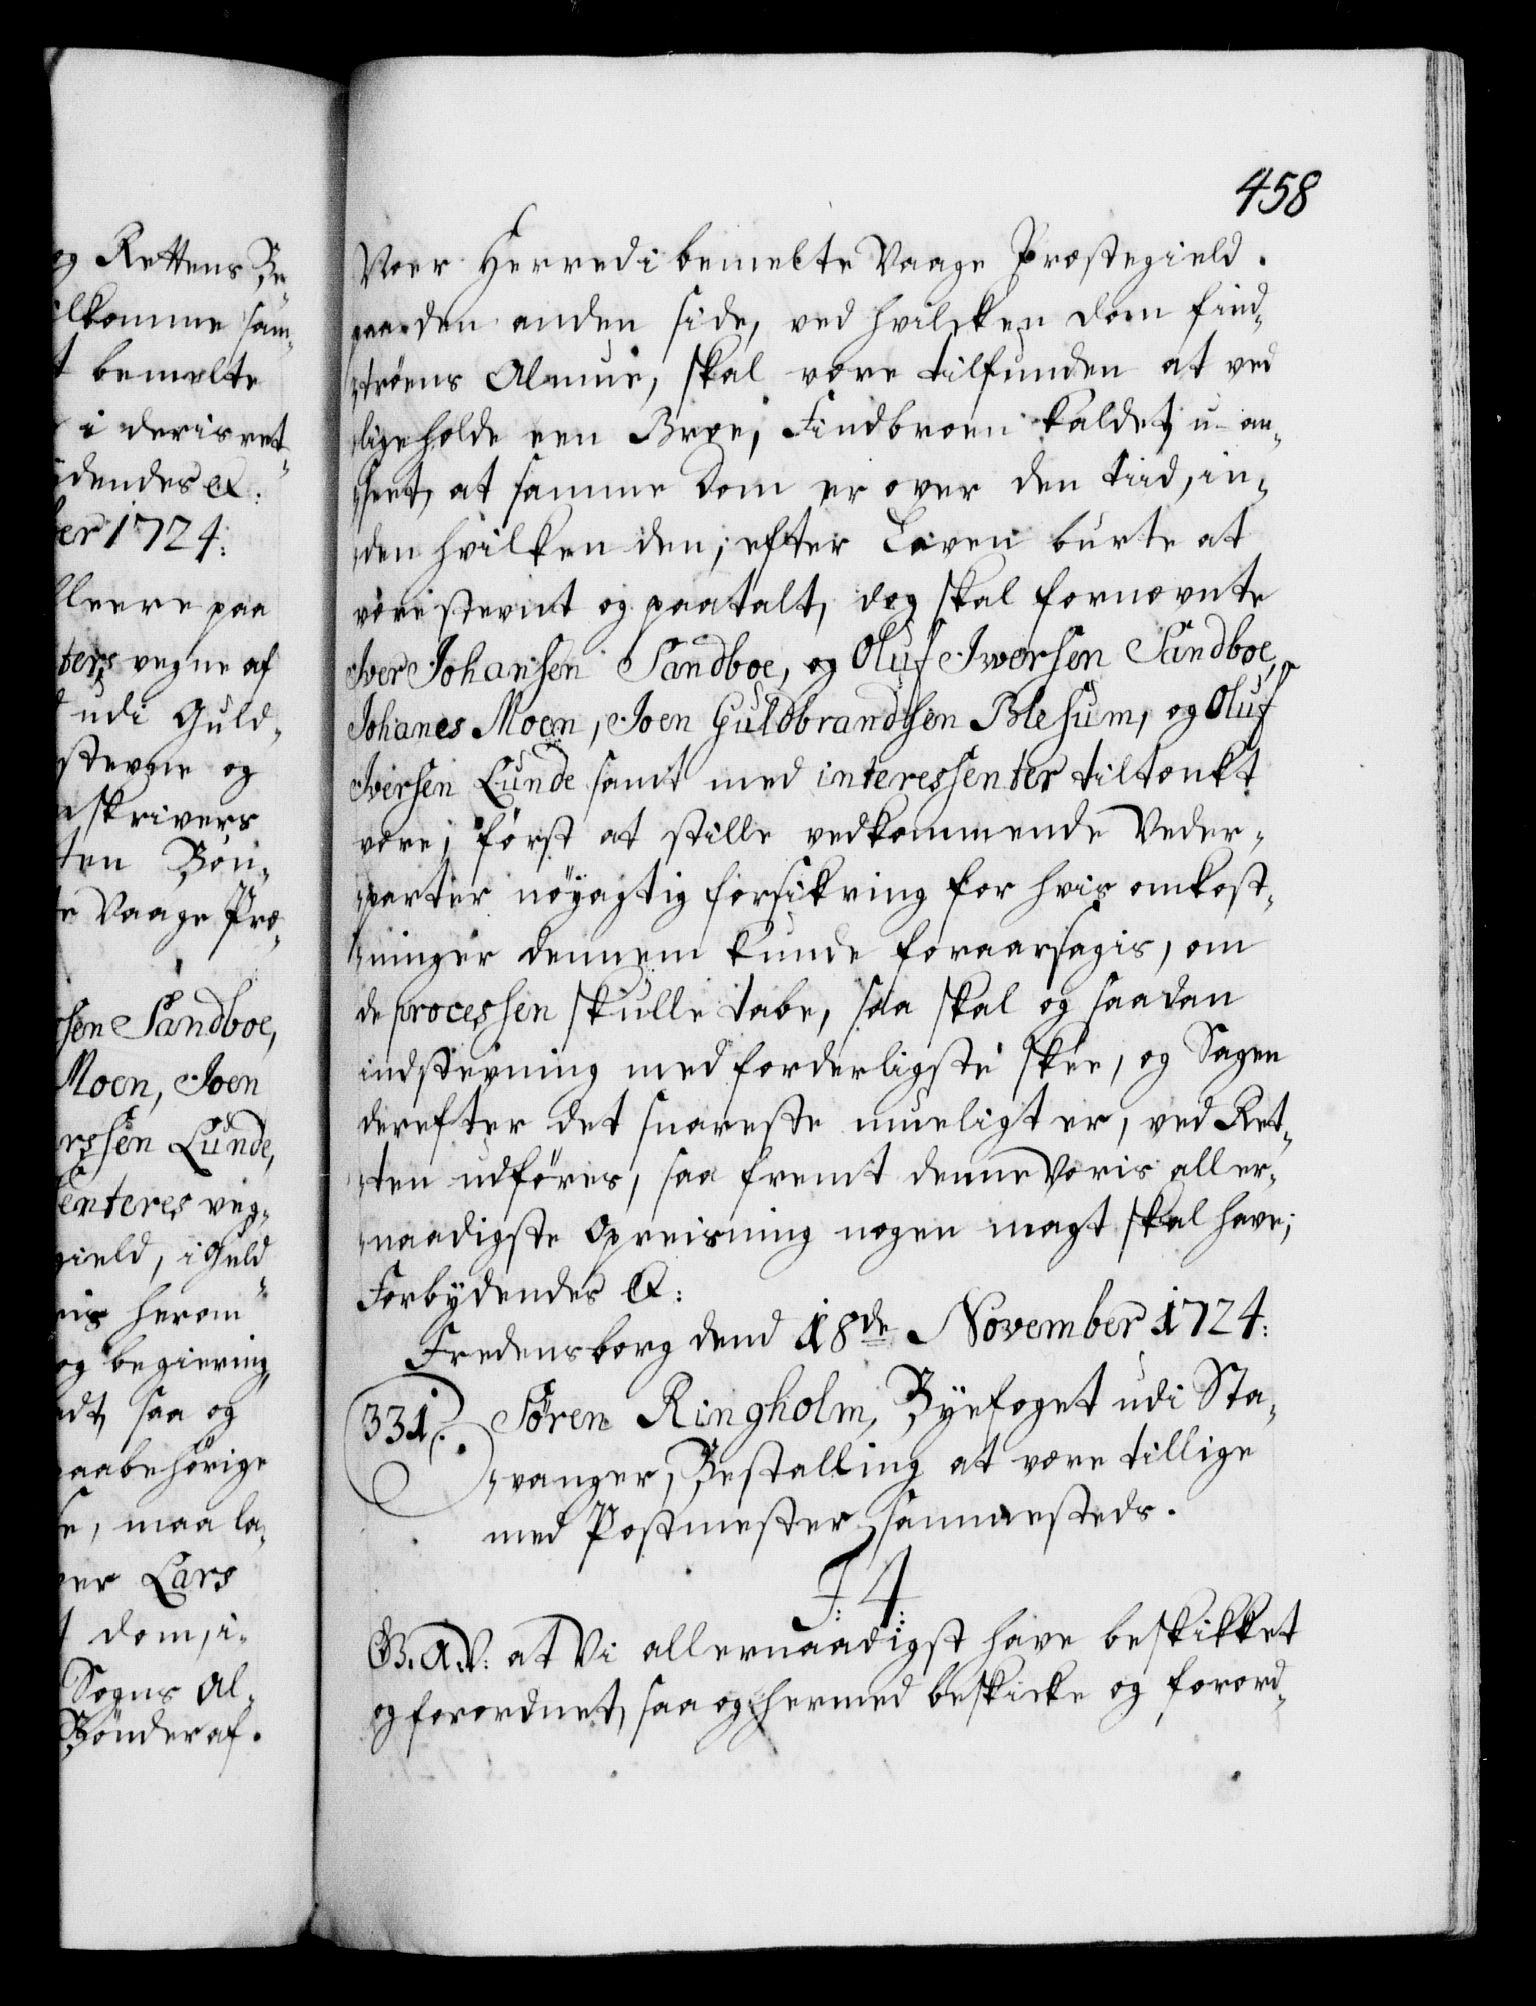 458
og Rettens Be-
ilkomme sam-
t bemelte
i deris ret-
ydendes &:
ber 1724:
lleere paa
ters vegne af
udi Guld-
stevne og
skrivers
ten Bøn-
te Vaage Præ-
rsen Sandboe,
Moen, Joen
rssen Lunde,
senteres veg-
gield, i Guld-
ris herom
og begiering,
ndt, saa og
paabehørige
se, maa la-
ver Lars
t dom, i-
Sogns Al-
Bønder af.
Noer Herred i bemelte Vaage Præstegield.
paa den anden side, ved hvilcken dom find-
strøens Almue, skal være tilfunden at ved
lige holde een Broe, Findbroen kaldet, u-an-
seet, at samme Dom er over den tiid, in-
den hvilken den, efter Loven burte at
være stevnt og paatalt, dog skal fornevnte
Iver Johansen Sandboe, og Oluf Iversen Sandboe,
Johanes Moen, Joen Guldbrandsen Blesum, og Oluf
Iversen Lunde samt med interessenter tiltenkt
være, først at stille vedkommende Veder-
parter nöyagtig forsikring for hvis omkost-
ninger dennem kunde foraarsagis, om
de processen skulle tabe, saa skal og saadan
indstevning med forderligste skee, og Sagen
derefter det snareste mueligt er, ved Ret-
ten udføres, saa fremt denne Voris aller-
naadigste Opreisning nogen magt skal have,
Forbydendes &:
Fredensborg dend 18de November 1724:
331. Søren Ringholm, Byefoget udi Sta-
vanger, Bestalling at være tillige
med Postmester sammesteds.
F: 4:
G.A.V: at Vi allernaadigst have beskikket
og forordnet, saa og hermed beskicke og forord-